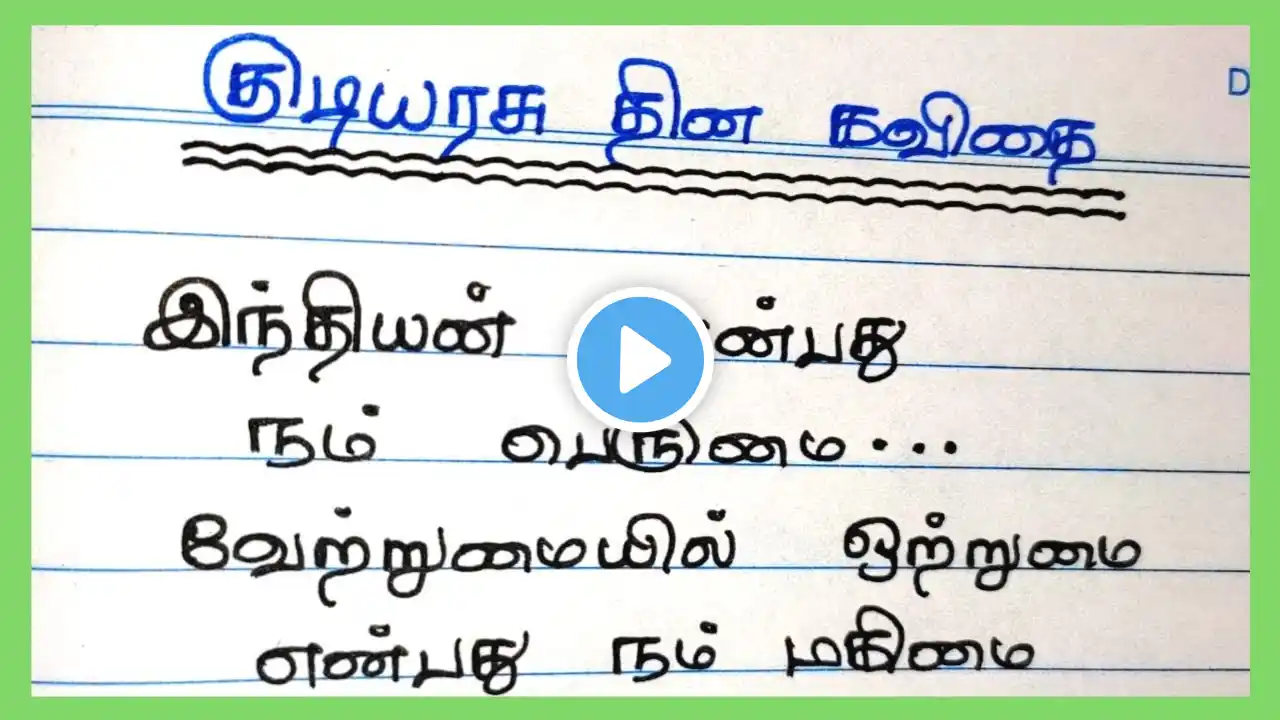 குடியரசு தின கவிதை
D
இந்தியன் என்பது
நம் பெருமை...
வேற்றுமையில் ஒற்றுமை
என்பது நம் மகிமை